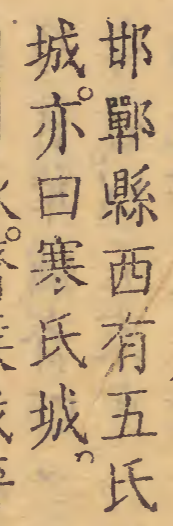 邯鄲縣西有五氏
城。亦曰寒氏城。